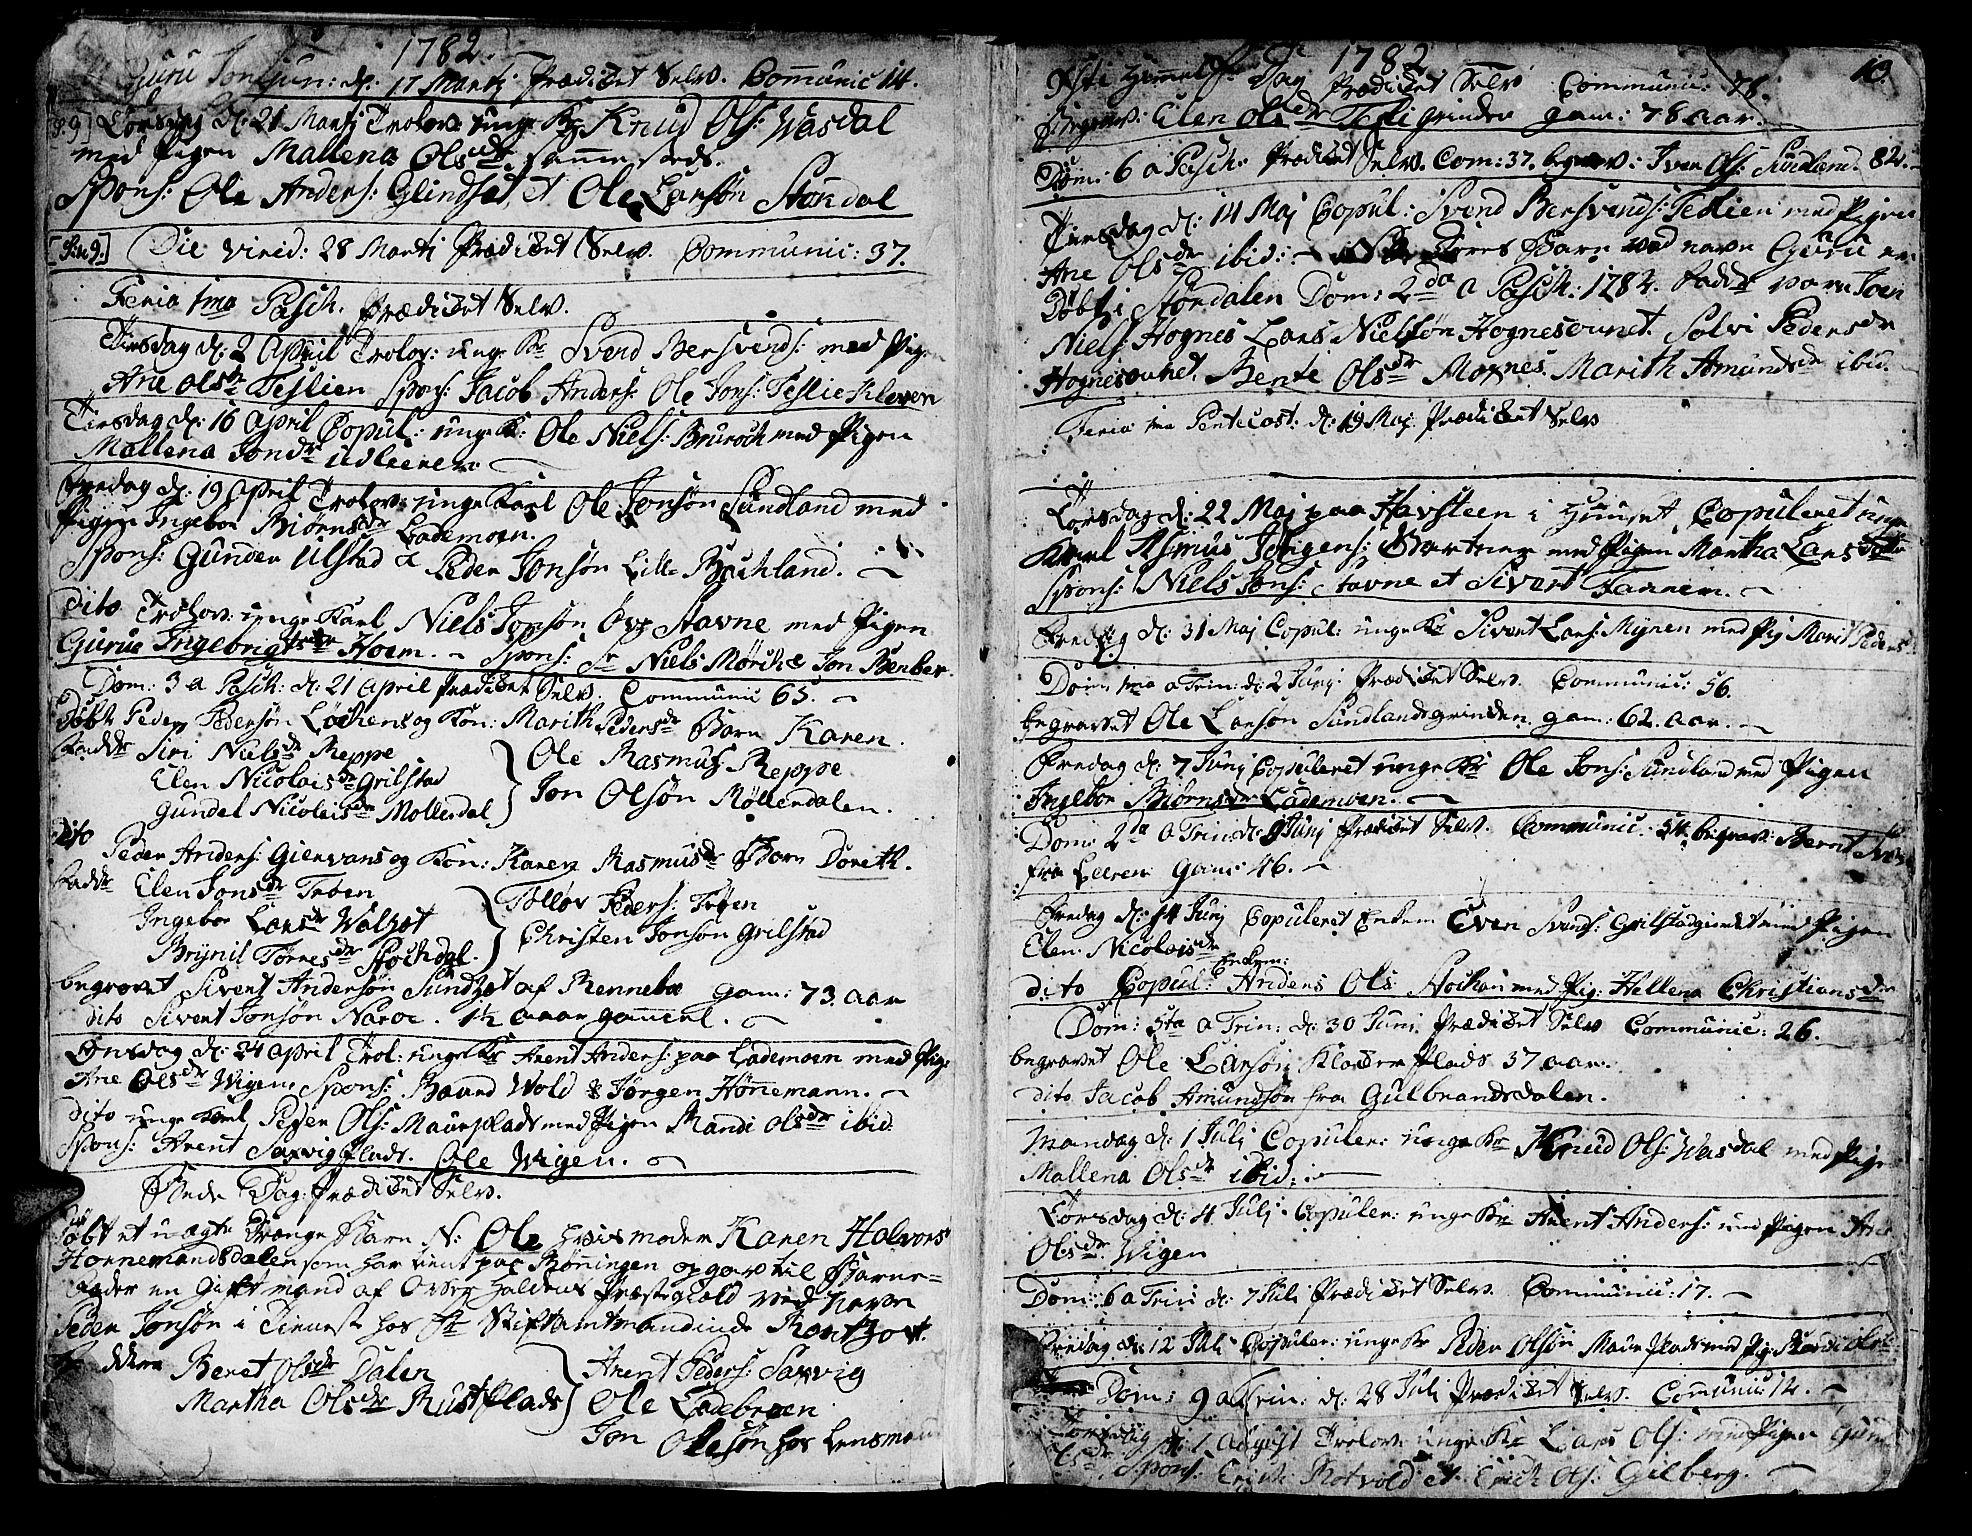 1782.
Guru Jonsdn: d: 17 Martj Prædicket Selv. Communic 14.
Torsdag d: 21 Martj Trolov: unge K: Knud Ols: Wasdal
med Pigen Mallena Olsdr sammesteds.
Spons: Ole Anders: Glindset et Ole Larsøn Stordal
Die virid: 28 Martj Prædicket Selv. Communic: 37.
Feria 1ma Pasch. Prædicket Selv.
Tirsdag d: 2 April Trolov: unge Kr Svend Bersvends: med Pigen
Ane Olsdr Teslien Spons: Jacob Anders: Ole Jons: Teslie Kleven
Tirsdag d: 16 April Copul: unge K: Ole Niels: Bruroch med Pigen
Mallena Jonsdr Udleeren
Fredag d: 19 April Trolov: unge Karl Ole Jonsøn Sundland med
Pigen Ingebor Biørnsdr Lademoen.
Spons: Gunder Ulstad & Peder Jonsøn Lille Buchland.
dito Trolov: unge Karl Niels Jonsøn Øvr Stavne med Pigen
Gurue Ingebrigtsdr Hoem. Spons: Sr Niels Mørch & Jon Benber
Dom: 3 a Pasch: d: 21 April Prædicket Selv. Communic 65.
Døbt Peder Pedersøn Løchens og Kon: Marith Pedersdr Barn Karen.
Fadd: Siri Nielsdr Reppe
Elen Nicolaisdr Grilstad
Gundel Nicolaisdr Mollerdal
Ole Rasmus: Reppe
Jon Olsøn Møllerdalen.
dito Peder Anders: Gienvans og Kon: Karen Rasmusdr Barn Doreth.
Fadd: Elen Jonsdr Trøen
Ingebor Larsdr Walset
Brynil Torresdr Stochdal.
Tolløv Peders: Trøen
Christen Jonsøn Grilstad
begravet Sivert Andersøn Sundset af Rennebo gam: 73. aar
dito Sivert Jonsøn Naroe. 1½ aar gammel.
Onsdag d: 24 April Trol: unge Kr Arent Anders: paa Lademoen med Pig:
Ane Olsdr Wigen. Spons: Baard Wold & Jørgen Hønnemann.
dito unge Karl Peder Ols: Maurplads med Pigen Randi Olsdr ibid.
Spons: Arent Saxvigplads. Ole Wigen.
Bede Dag: Prædicket Selv.
Døbt et uægte Drenge Barn N: Ole hvis moder Karen Halvors
Hornemandsdalen som har tient paa Røningen og gav til Barne-
Fader en Gift mand af Overhaldens Præstegield ved Navn
Peder Jonsøn i Tieneste hos Fr Stiftamtmandinde Rantzov.
Faddere Beret Olsdr Dalen
Martha Olsdr Rustplads
Arent Peders: Saxvig
Ole Ladebroen
Jon Olesøn hos Lensmand
1782
10.
Christi Himmelf: Dag Prædicket Selv Communic: 78.
Begrav: Elen Olsdr Tesli grinden gam: 78 aar.
Dom: 6 a Pasch: Prædicket Selv. Com: 37. begrav: Iver Ols: Sundland. 82.
Tirsdag d: 14 Maj Copul: Svend Bersvends: Teslien med Pigen
Ane Olsdr ibid: Deres Barn ved navn Guru er
Døbt i Stordalen Dom: 2da a Pasch: 1782. Fadd: vare Joen
Niels: Hognes Lars Nielsøn Hognesounet. Solvi Pedersdr
Hognesounet. Bente Olsdr Moxnes. Marith Amundsdr ibid.
Feria 1ma Pentecost: d: 19 Maj: Prædicket Selv
Torsdag d: 22 Maj paa Havsteen i Huuset Copuleret unge
Karl Asmus Jørgens: Gartner med Pigen Martha Lars
Spons: Niels Jons: Stavne et Sivert Tanem.
Fredag d: 31 Maj Copul: unge Kr Sivert Lars: Mynen med Pig Marit Peders
Dom: 1ma a Trin: d: 2 Junj: Prædicket Selv. Communic: 56.
begravet Ole Larsøn Sundlandsgrinden. gam: 62. aar.
Fredag d: 7 Junj Copuleret unge Kr Ole Jons: Sundland med Pigen
Ingebor Biørnsdr Lademoen.
Dom: 2da a Trin d: 9 Junj Prædicket Selv. Communic: 54. begrav: Bernt
fra Leeren Gam: 46.
Fredag d: 14 Junj Copuleret Enkem Even Svends: Grilstadgiordet med Pigen
Elen Nicolaisdr
dito Copul: Enkem: Anders Ols: Stochan med Pig: Hellena Christiansdr
Dom: 5ta a Trin: d: 30 Junj. Prædicket Selv Communic: 26.
begravet Ole Larsøn Klocker plads 37 aar.
dito Jacob Amundsøn fra Gulbrandsdalen.
Mandag d: 1 Julj Copuler: unge Kr Knud Ols: Wasdal med Pige
Mallena Olsdr ibid:
Torsdag d: 4 Julj Copuler: unge Kr Arent Anders: med Pigen Ane
Olsdr Wigen
Dom: 6 a Trin d: 7 Juli Prædicket Selv. Communic: 17.
Fredag d: 12 Juli Copuler: unge Kr Peder Olsøn Maurplads med Pig: Randi Ols:
Dom: 9 a Trin: d: 28 Juli Prædicket Selv. Communic: 14.
Torsdag d: 1 August Trolov: unge Kr Lars Ols: med Pigen Guru
Olsdr. Spons: Erich Rotvold et Erich Ols: Gilberg.